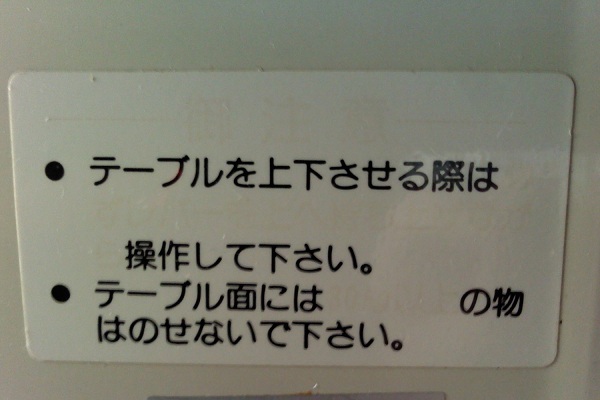 ●テーブルを上下させる際は
操作して下さい。
●テーブル面には の物
はのせないで下さい。